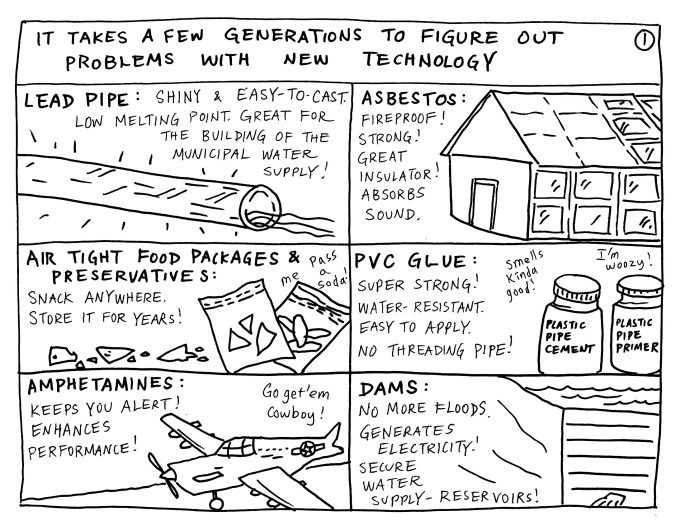 IT TAKES A FEW GENERATIONS TO FIGURE OUT
PROBLEMS WITH NEW TECHNOLOGY
1
LEAD PIPE: SHINY & EASY-TO-CAST.
LOW MELTING POINT. GREAT FOR
THE BUILDING OF THE
MUNICIPAL WATER
SUPPLY!
ASBESTOS:
FIREPROOF!
STRONG!
GREAT
INSULATOR!
ABSORBS
SOUND.
AIR TIGHT FOOD PACKAGES &
PRESERVATIVES:
SNACK ANYWHERE.
STORE IT FOR YEARS!
Pass
me a
soda!
PVC GLUE:
SUPER STRONG!
WATER-RESISTANT.
EASY TO APPLY.
NO THREADING PIPE!
Smells
Kinda
good!
I'm
woozy!
PLASTIC
PIPE
CEMENT
PLASTIC
PIPE
PRIMER
AMPHETAMINES:
KEEPS YOU ALERT!
ENHANCES
PERFORMANCE!
Go get'em
Cowboy!
DAMS:
NO MORE FLOODS.
GENERATES
ELECTRICITY!
SECURE
WATER
SUPPLY-RESERVOIRS!